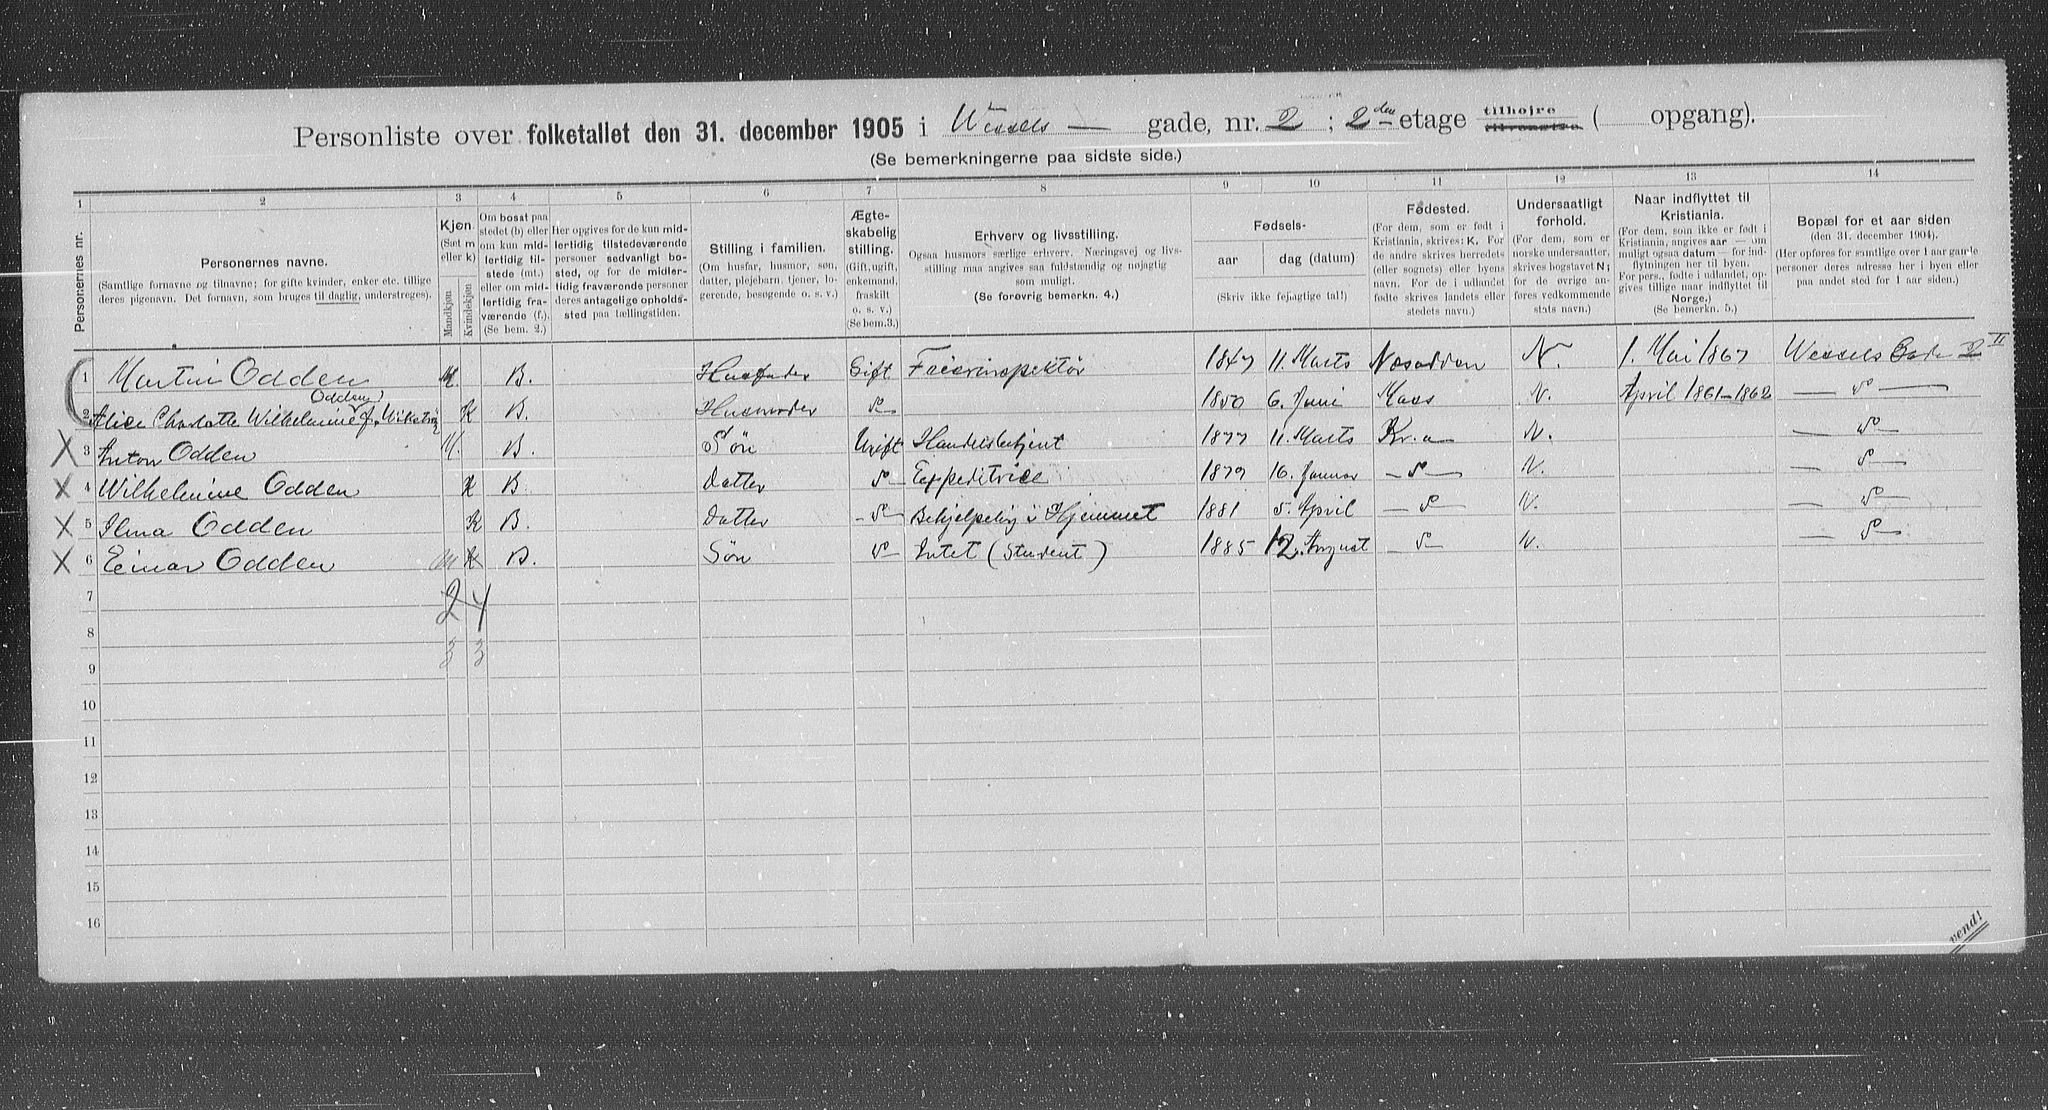 Personliste over folketallet den 31. december 1905 i Wessels — gade, nr. 2 ; 2den etage tilhøjre tilvenstre ( opgang).
(Se bemerkningerne paa sidste side.)
1 2 3 4 5 6 7 8 9 10 11 12 13 14
Personernes nr.
Personernes navne.
(Samtlige fornavne og tilnavne; for gifte kvinder, enker etc. tillige
deres pigenavn. Det fornavn, som bruges til daglig, understreges).
Kjøn.
(Sæt m
eller k)
Mandkjøn
Kvindekjøn
Om bosat paa
stedet (b) eller
om kun mid-
lertidig til-
stede (mt.)
eller om mid-
lertidig fra-
værende (f.).
(Se bem. 2.)
Her opgives for de kun mid-
lertidig tilstedeværende
personer sedvanligt bo-
sted, og for de midler-
tidig fraværende personer
deres antagelige opholds-
sted paa tællingstiden.
Stilling i familien.
(Om husfar, husmor, søn,
datter, plejebarn, tjener, lo-
gerende, besøgende o. s. v.)
Ægte-
skabelig
stilling.
(Gift, ugift,
enkemand,
fraskilt
o. s. v.)
(Se bem. 3.)
Erhverv og livsstilling.
Ogsaa husmors særlige erhverv. Næringsvej og livs-
stilling maa angives saa fuldstændig og nøjagtig
som muligt.
(Se forøvrig bemerkn. 4.)
Fødsels-
aar
dag (datum)
(Skriv ikke fejagtige tal!)
Fødested.
(For dem, som er født i
Kristiania, skrives: K. For
de andre skrives herredets
(eller sognets) eller byens
navn. For de i udlandet
fødte skrives landets eller
stedets navn.)
Undersaatligt
forhold.
(For dem, som er
norske undersaatter,
skrives bogstavet N;
for de øvrige an-
føres vedkommende
stats navn.)
Naar indflyttet til
Kristiania.
(For dem, som ikke er født i
Kristiania, angives aar — om
muligt ogsaa datum — for ind-
flytningen her til byen.
For pers., fødte i udlandet, op-
gives tillige naar indflyttet til
Norge.)
(Se bemerkn. 5.)
Bopæl for et aar siden
(den 31. december 1904).
(Her opføres for samtlige over 1 aar gamle
personer deres adresse her i byen eller
paa andet sted for 1 aar siden.)
1 Martin Odden M B. Husfader Gift Feierinspektør 1847 11. Marts Nesodden N. 1. Mai 1867 Wessels Gade 2 II
Odden
2 Alice Charlotte Wilhelmine f. K B. Husmoder do 1850 6. Juni Moss N. April 1861–1862 — do —
X 3 Anton Odden M. B. Søn Ugift Handelsbetjent 1877 11. Marts Kr.a N. — do
X 4 Wilhelmine Odden K B. Datter do Expeditrice 1879 16. Januar — do — N. — do —
X 5 Ilma Odden K B. Datter — do Behjelpelig i Hjemmet 1881 5. April — do — N. — do
X 6 Einar Odden m k B. Søn do Intet (Student) 1885 12. August — do N. — do —
7 2 4
8
9 3 3
10
11
12
13
14
15
16
vend!